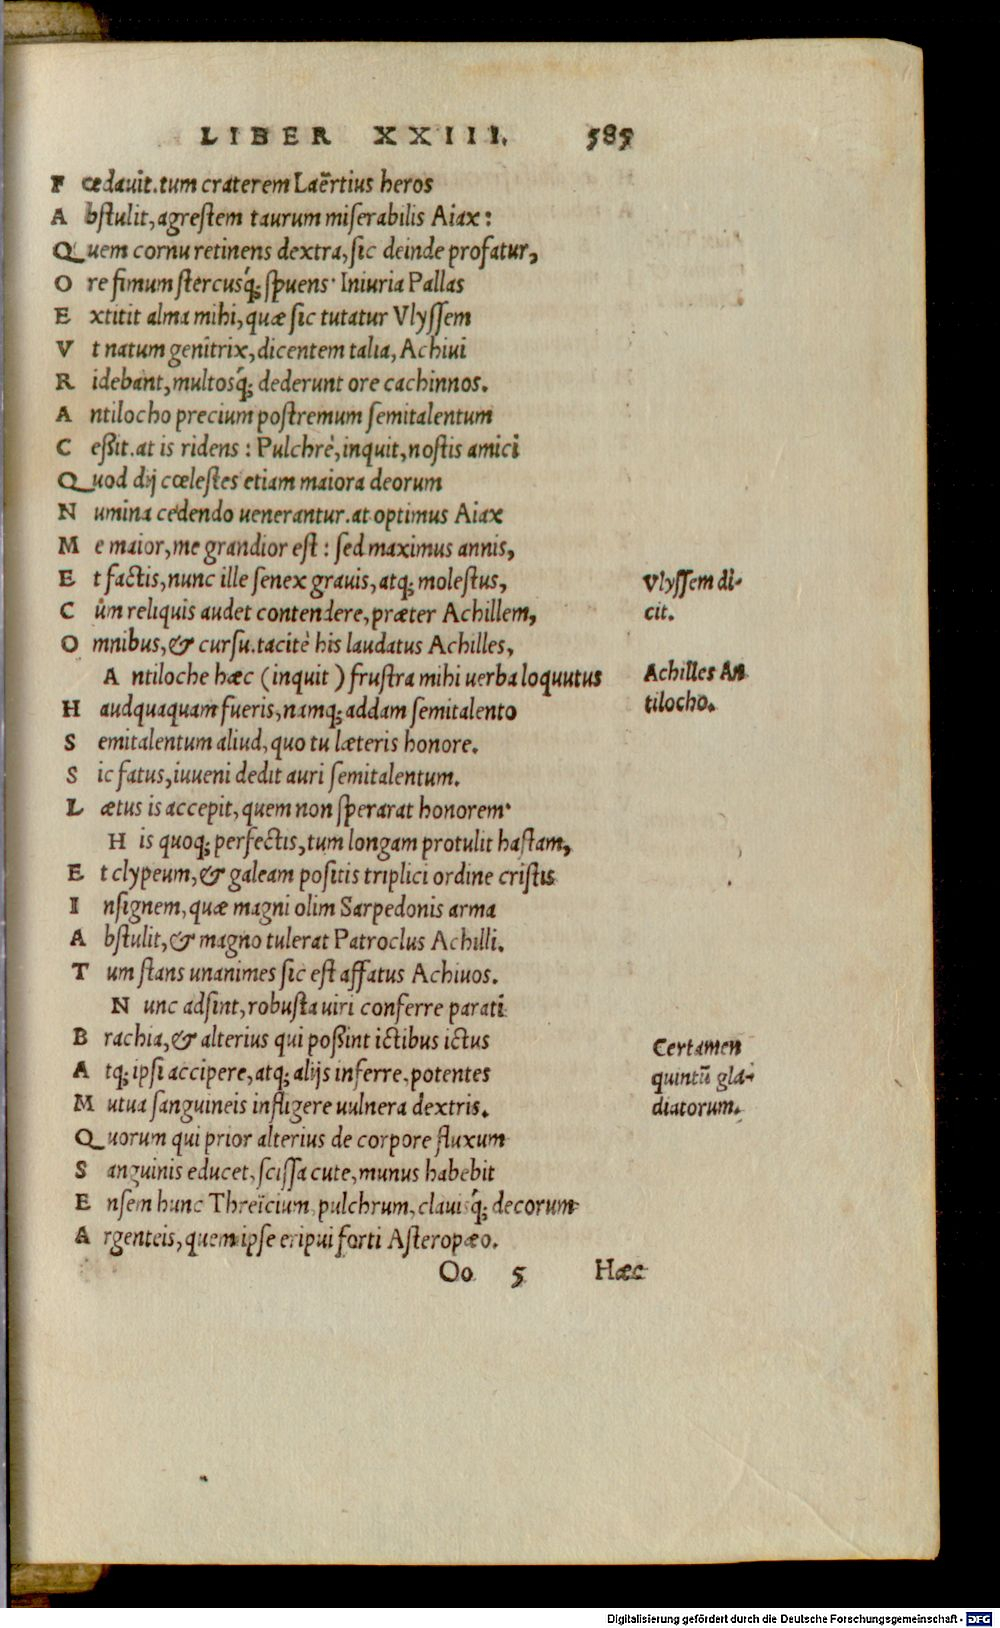 LIBER XXIII. 585
F œdauit. tum craterem Laërtius heros
A bſtulit, agreſtem taurum miſerabilis Aiax:
Q uem cornu retinens dextra, ſic deinde profatur,
O re fimum ſtercusq́; ſpuens· Iniuria Pallas
E xtitit alma mihi, quæ ſic tutatur Vlyſſem
V t natum genitrix, dicentem talia, Achiui
R idebant, multosq́; dederunt ore cachinnos.
A ntilocho precium poſtremum ſemitalentum
C eßit. at is ridens: Pulchrè, inquit, noſtis amici
Q uod dij cœleſtes etiam maiora deorum
N umina cedendo uenerantur. at optimus Aiax
M e maior, me grandior eſt: ſed maximus annis,
E t factis, nunc ille ſenex grauis, atq; moleſtus,
Vlyſſem di-
C ùm reliquis audet contendere, præter Achillem,
cit.
O mnibus, & curſu. tacitè his laudatus Achilles,
A ntiloche hæc (inquit) fruſtra mihi uerba loquutus
Achilles An
H audquaquam fueris, namq; addam ſemitalento
tilocho.
S emitalentum aliud, quo tu læteris honore.
S ic fatus, iuueni dedit auri ſemitalentum.
L ætus is accepit, quem non ſperarat honorem·
H is quoq; perfectis, tum longam protulit haſtam,
E t clypeum, & galeam poſitis triplici ordine criſtis
I nſignem, quæ magni olim Sarpedonis arma
A bſtulit, & magno tulerat Patroclus Achilli.
T um ſtans unanimes ſic eſt affatus Achiuos.
N unc adſint, robuſta uiri conferre parati
B rachia, & alterius qui poßint ictibus ictus
Certamen
A tq; ipſi accipere, atq; alijs inferre, potentes
quintũ gla-
M utua ſanguineis infligere uulnera dextris.
diatorum.
Q uorum qui prior alterius de corpore fluxum
S anguinis educet, ſciſſa cute, munus habebit
E nſem hunc Threïcium pulchrum, clauisq́; decorum
A rgenteis, quem ipſe eripui forti Aſteropæo.
Oo 5 Hæc
Digitalisierung gefördert durch die Deutsche Forschungsgemeinschaft - DFG